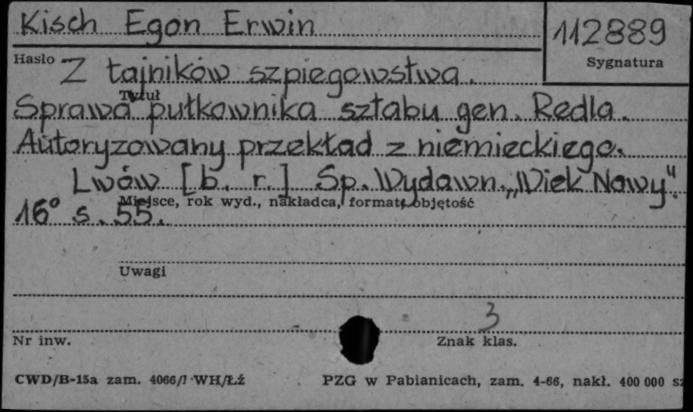 Kisch Egon Erwin
112889
Hasło
Sygnatura
Z tajników szpiegowstwa.
Tytuł
Sprawa pułkownika sztabu gen. Redla.
Autoryzowany przekład z niemieckiego.
Lwów [b. r.] Sp. Wydawn. „Wiek Nowy".
Miejsce, rok wyd., nakładca, format, objętość
16° s. 55.
Uwagi
3
Nr inw.
Znak klas.
CWD/B-15a zam. 4066/J WH/Łź
PZG w Pabianicach, zam. 4-66, nakł. 400 000